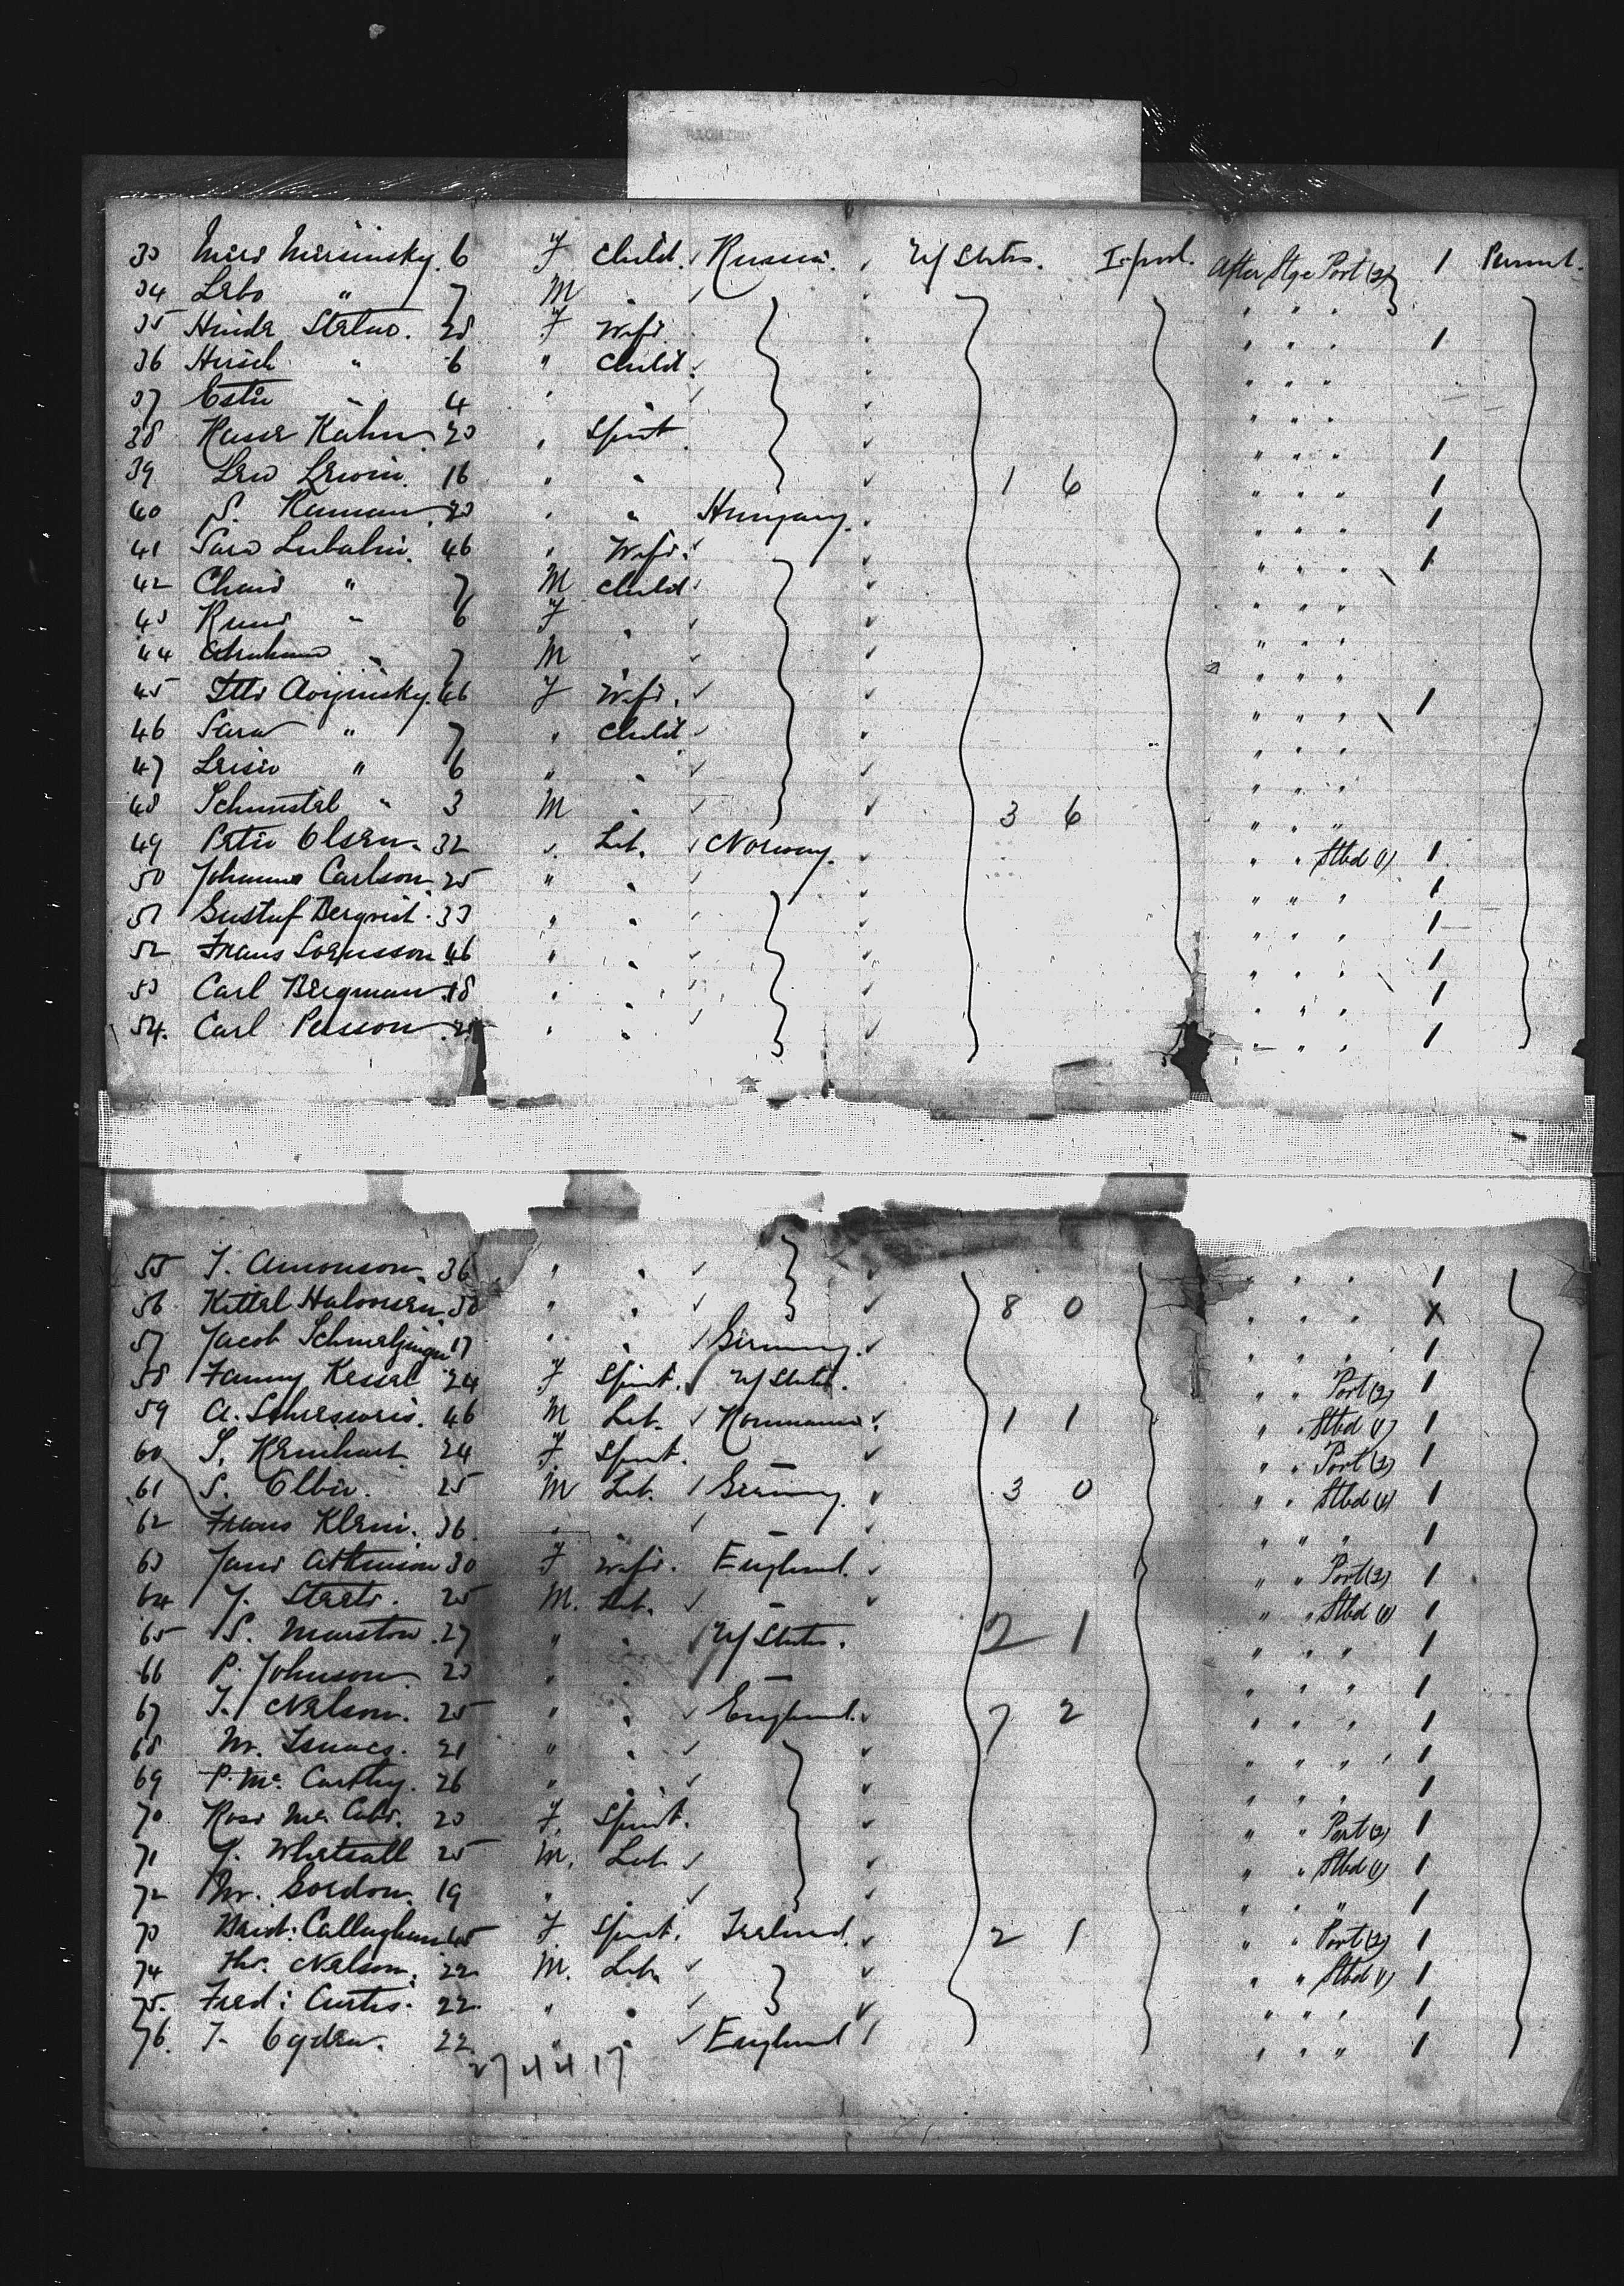 33 Miere Miersinsky. 6 F Child. Russia. U/States. L'pool. After Stge Port (2) 1 Permt.
34 Lebo " 7 M " " " "
35 Hinde Statno. 28 F Wife. " " " 1
36 Hirsch " 6 " Child. " " "
37 Estie " 4 " " " " "
38 Kasse Kahn 20 " Spint " " " 1
39 Lew Lewin. 16 " " 1 6 " " " 1
40 S. Kaman. 20 " " Hungary. " " " 1
41 Sara Lubalin. 46 " Wife. " " " 1
42 Chaie " 7 M Child " " "
43 " 6 F " " " "
44 Abraham " 7 M " " " "
45 46 F Wife. " " " 1
46 Sara " 7 " Child " " "
47 Leisie " 6 " " " " "
48 " 3 M " 3 6 " " "
49 Peter Olsen. 32 " Lab. Norway. " " Stbd (1) 1
50 Johanns Carlson. 25 " " " " " 1
51 Gustuf Berqvist. 33 " " " " " 1
52 Frans Svensson 46 " " " " " 1
53 Carl Bergman 18 " " " " " 1
54. Carl Persson " " " " " 1
55 J. Amonson. 36 " " " " " 1
56 Kittel Halvorsen. 50 " " 8 0 " " " 1
57 Jacob Schmelzinger 17 " " Germany. " " " 1
58 Fanny Kessel 24 F Spint. U/States. " " Port (2) 1
59 A. 46 M Lab. Roumania. 1 1 " " Stbd (1) 1
60 S. Reinhart 24 F Spint. " " " Port (2) 1
61 S. Olbin. 25 M Lab. Germany. 3 0 " " Stbd (1) 1
62 Frans Klein. 36. " " " " " " 1
63 Jane Atkinson 30 F Wife. England. " " Port (2) 1
64 J. Steets. 25 M. Lab. " " " Stbd (1) 1
65 S. Marston. 27 " " U/States. 2 1 " " " 1
66 P. Johnson 23 " " " " " " 1
67 J. Nelson. 25 " " England. 7 2 " " " 1
68 M. Isaacs. 21 " " " " " 1
69 P. Mc Carthy. 26 " " " " " 1
70 Rose Mc Cabe. 20 F. Spint. " " Port (2) 1
71 J. Whatsall 25 M. Lab " " Stbd (1) 1
72 M. Gordon. 19 " " " " " 1
73 Brid: Callaghan 45 F Spint. Ireland. 2 1 " " Port (2) 1
74 Thos. Nelson. 22 M. Lab. " " Stbd (1) 1
75. Fred: Curtis. 22 " " " " " 1
76. J. Ogden. 22 " " England " " " 1
27 4 4 17